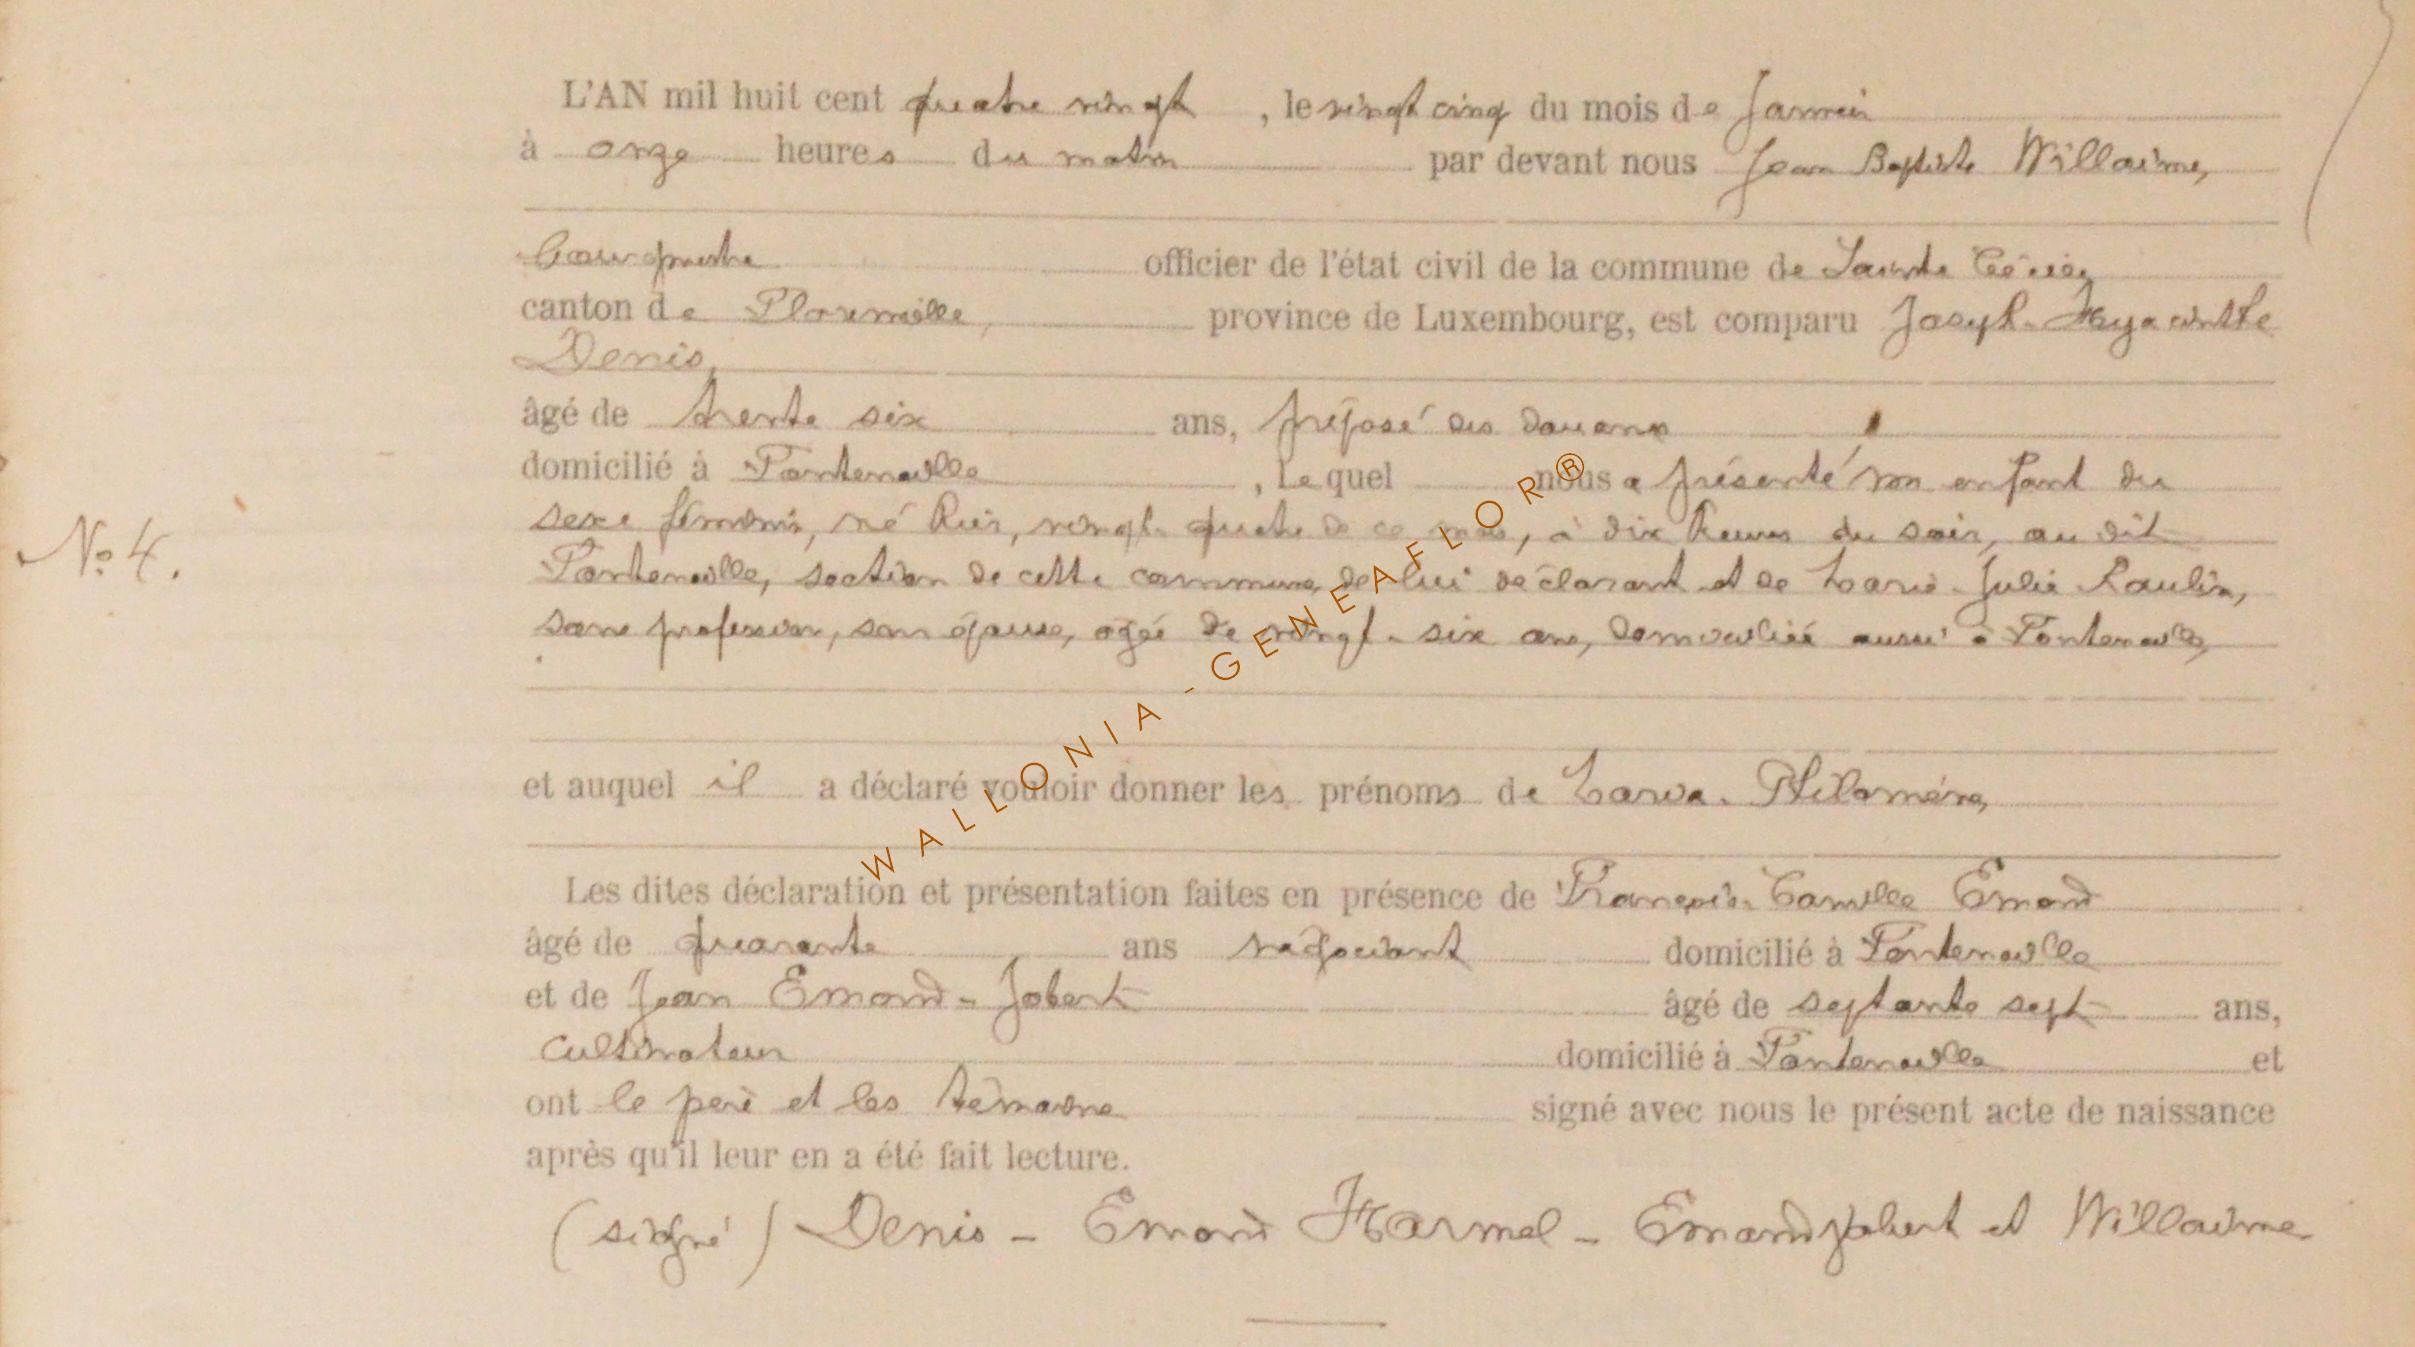 L'AN mil huit cent quatre vingt, le vingt cinq du mois de Janvier
à onze heures du matin par devant nous Jean Baptiste Willaime,
bourgmestre officier de l'état civil de la commune de Sainte Cécile
canton de Florenville, province de Luxembourg, est comparu Joseph-Hyacinthe
Denis,
âgé de trente six ans, préposé des douanes
domicilié à Fontenoille, Lequel nous a présenté un enfant du
N° 4.
sexe féminin, né hier, vingt-quatre de ce mois, à dix heures du soir, au dit
Fontenoille, section de cette commune, de lui déclarant et de Marie-Julie Raulin,
sans profession, son épouse, agée de vingt-six ans, domiciliée aussi à Fontenoille,
et auquel il a déclaré vouloir donner les prénoms de Maria-Philomène,
Les dites déclaration et présentation faites en présence de François-Camille Emond
âgé de quarante ans négociant domicilié à Fontenoille
et de Jean Emond-Jobert âgé de septante sept ans,
cultivateur domicilié à Fontenoille et
ont le père et les témoins signé avec nous le présent acte de naissance
après qu'il leur en a été fait lecture.
(signé) Denis - Emond Harmel - Emond Jobert et Willaime
WALLONIA-GENEAFLOR®